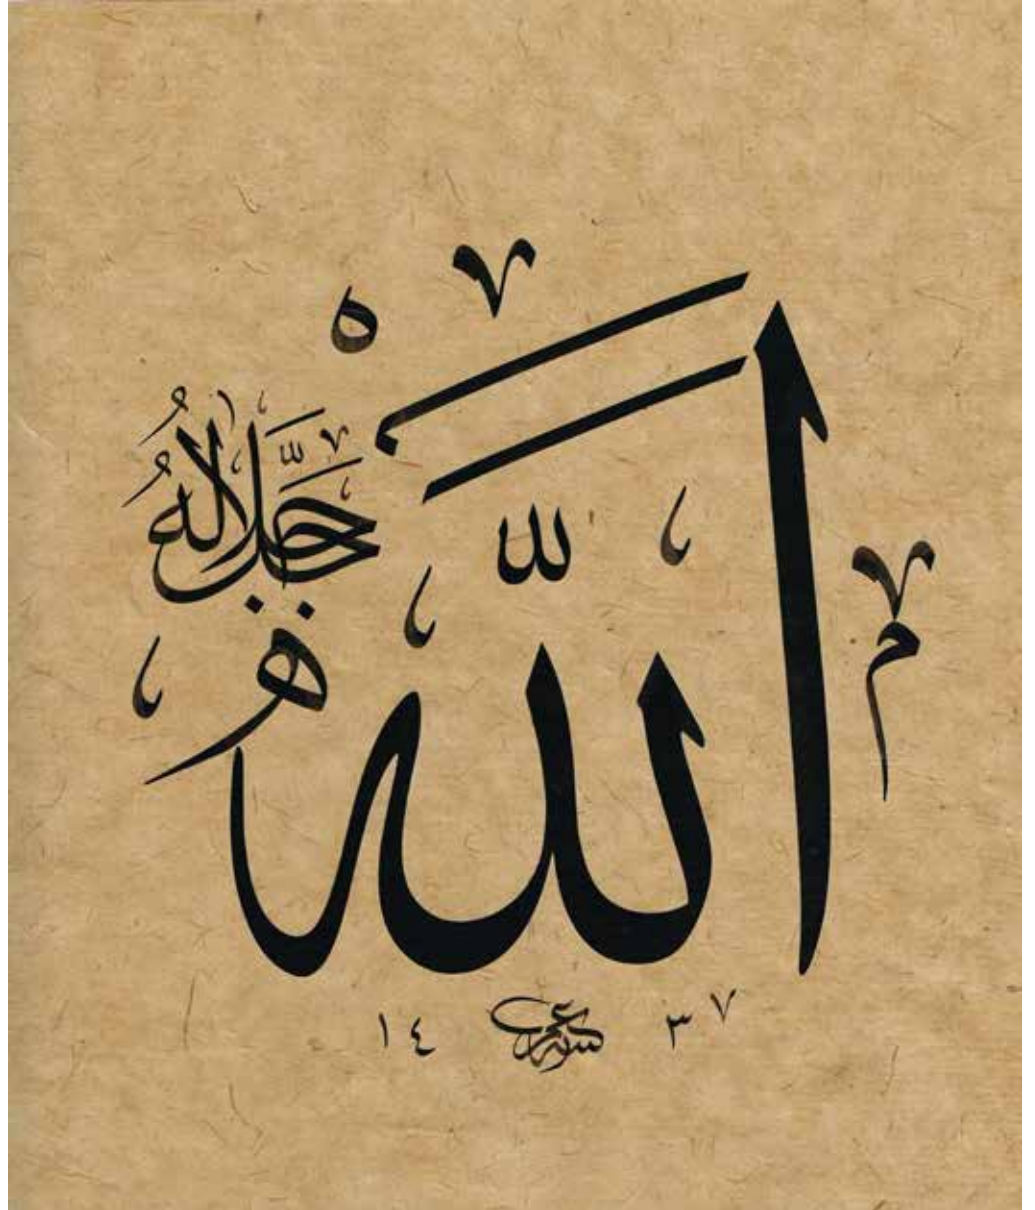 اللّٰه
جَلَّ جَلَالُهُ
١٤ ٣٧